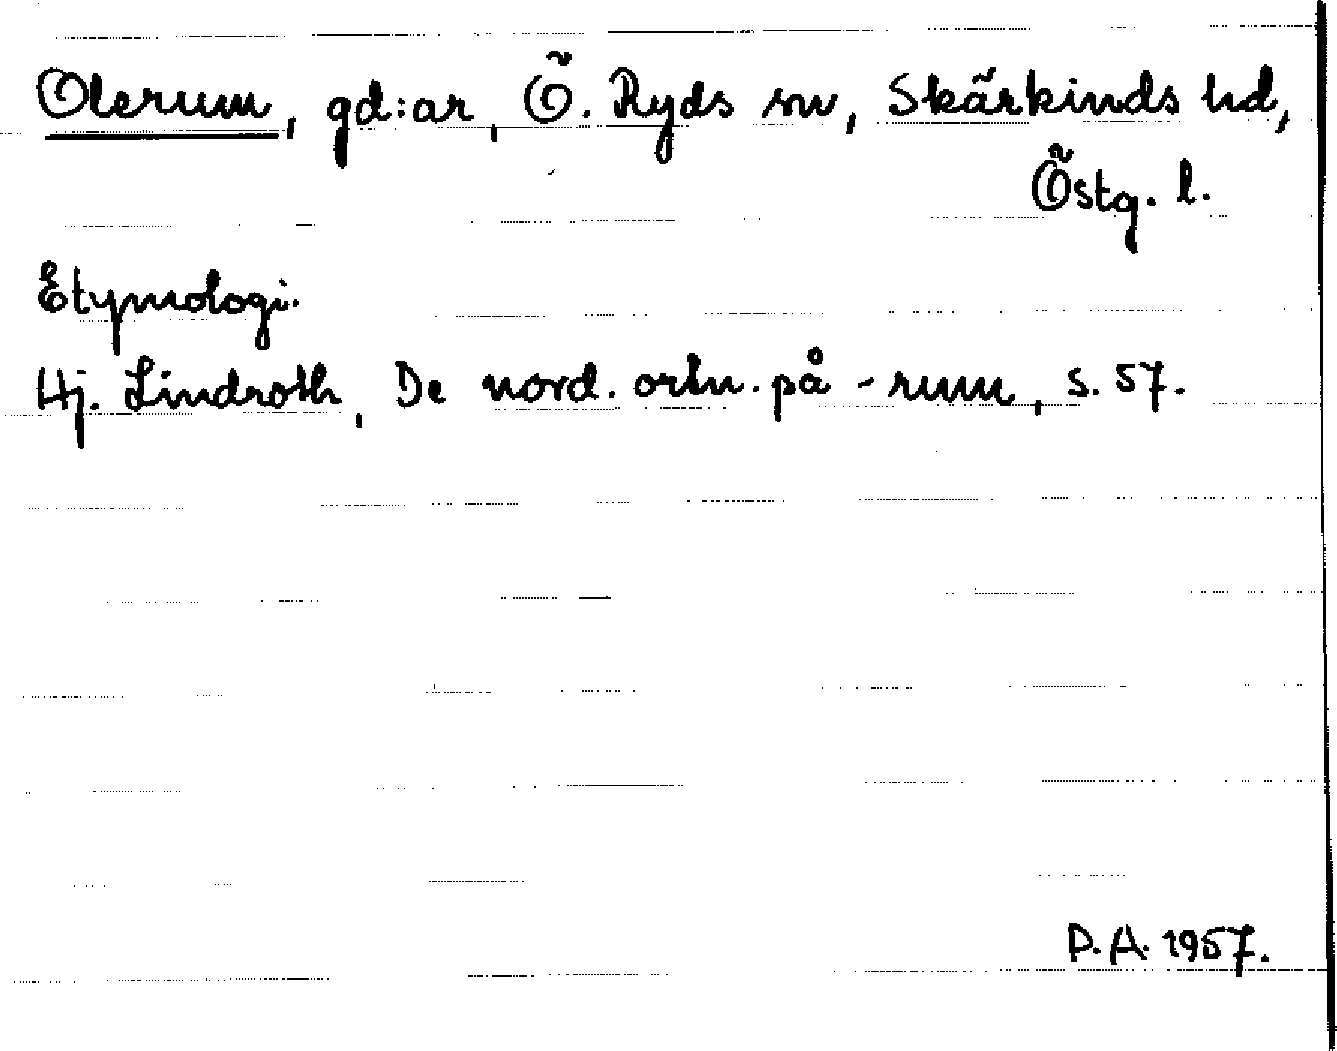 Olerum, gd:ar, Ö. Ryds sn, Skärkinds hd,
Östg. l.
Etymologi.
Hj. Lindroth, De nord. ortn. på -rum, s. 57.
D.A. 1957.